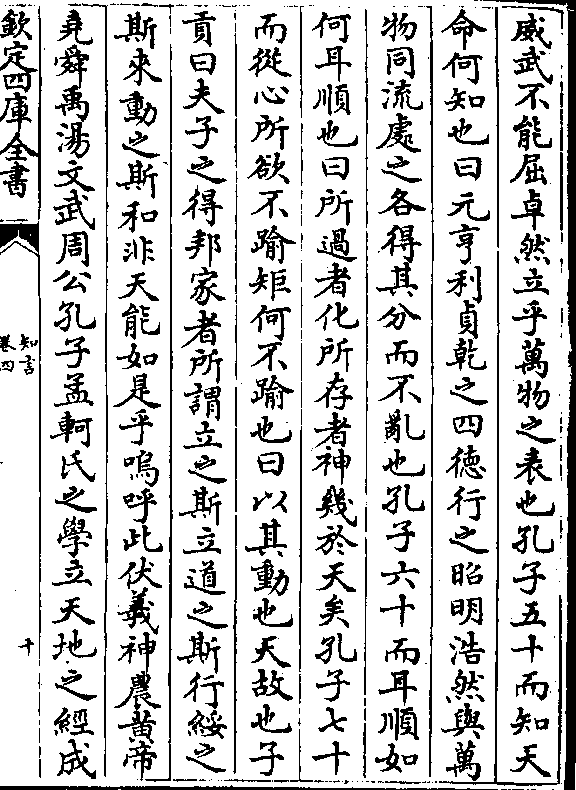 威武不能屈卓然立乎萬物之表也孔子五十而知天
命何知也曰元亨利貞乾之四德行之昭明浩然與萬
物同流處之各得其分而不亂也孔子六十而耳順如
何耳順也曰所過者化所存者神幾於天矣孔子七十
而從心所欲不踰矩何不踰也曰以其動也天故也子
貢曰夫子之得邦家者所謂立之斯立道之斯行綏之
斯來動之斯和非天能如是乎嗚呼此伏羲神農黃帝
堯舜禹湯文武周公孔子孟軻氏之學立天地之經成
欽定四庫全書
知言
卷四
十